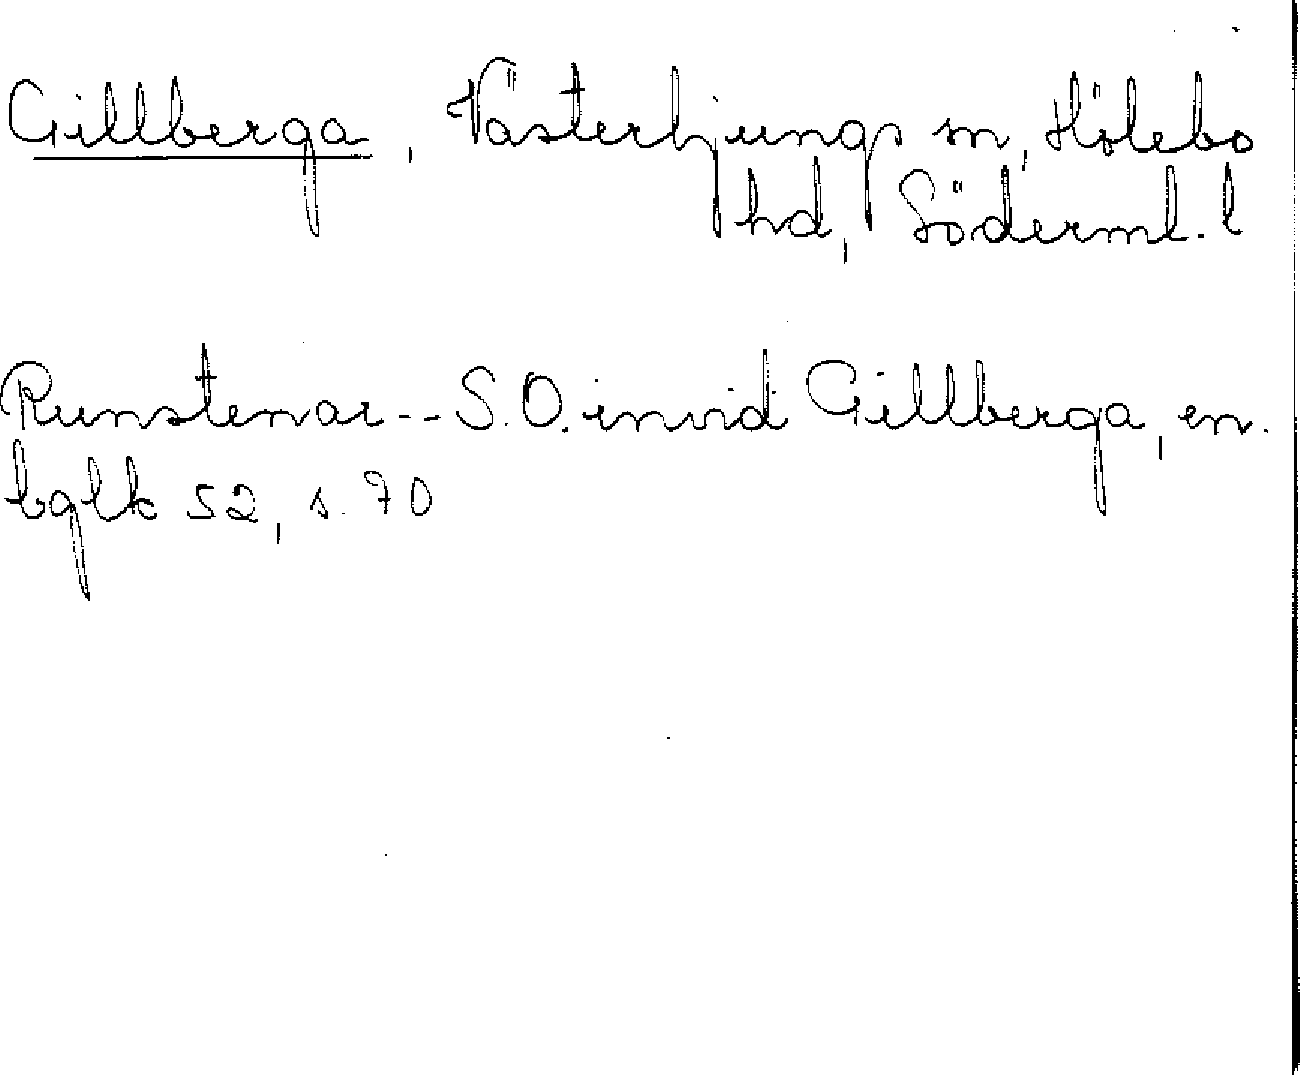 Gillberga, Västerljungs sn, Hölebo
hd, Söderml. l
Runstenar -- S.O. invid Gillberga, en.
bglk 52, s. 70